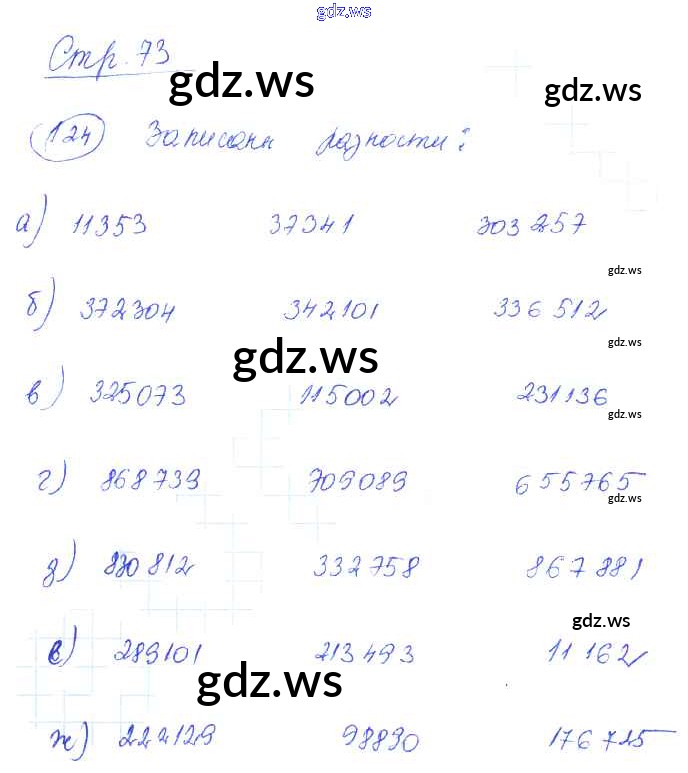 gdz.ws
Стр. 73
gdz.ws gdz.ws
124 Записаны разности:
а) 11353 37341 303 257
gdz.ws
б) 372304 342101 336 512
gdz.ws gdz.ws
в) 325073 115002 231136
gdz.ws
г) 868739 709089 655765
gdz.ws
д) 830812 332758 867881
gdz.ws
е) 289101 213493 11162
gdz.ws gdz.ws
ж) 222129 98890 176725